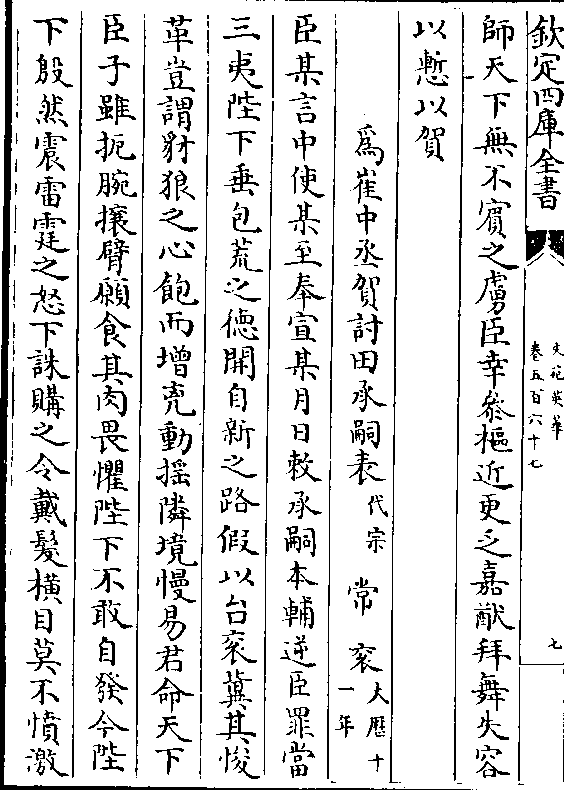 欽定四庫全書
文苑英華
卷五百六十七
七
師天下無不賔之虜臣幸叅樞近更乏嘉猷拜舞失容
以慙以賀
為崔中丞賀討田承嗣表代宗 常衮大厯十一年
臣某言中使某至奉宣某月日敕承嗣本輔逆臣罪當
三夷陛下垂包荒之徳開自新之路假以台衮冀其悛
革豈謂豺狼之心飽而增兇動揺隣境慢易君命天下
臣子雖扼腕攘臂願食其肉畏懼陛下不敢自發今陛
下殷然震雷霆之怒下誅購之令戴髮橫目莫不憤激